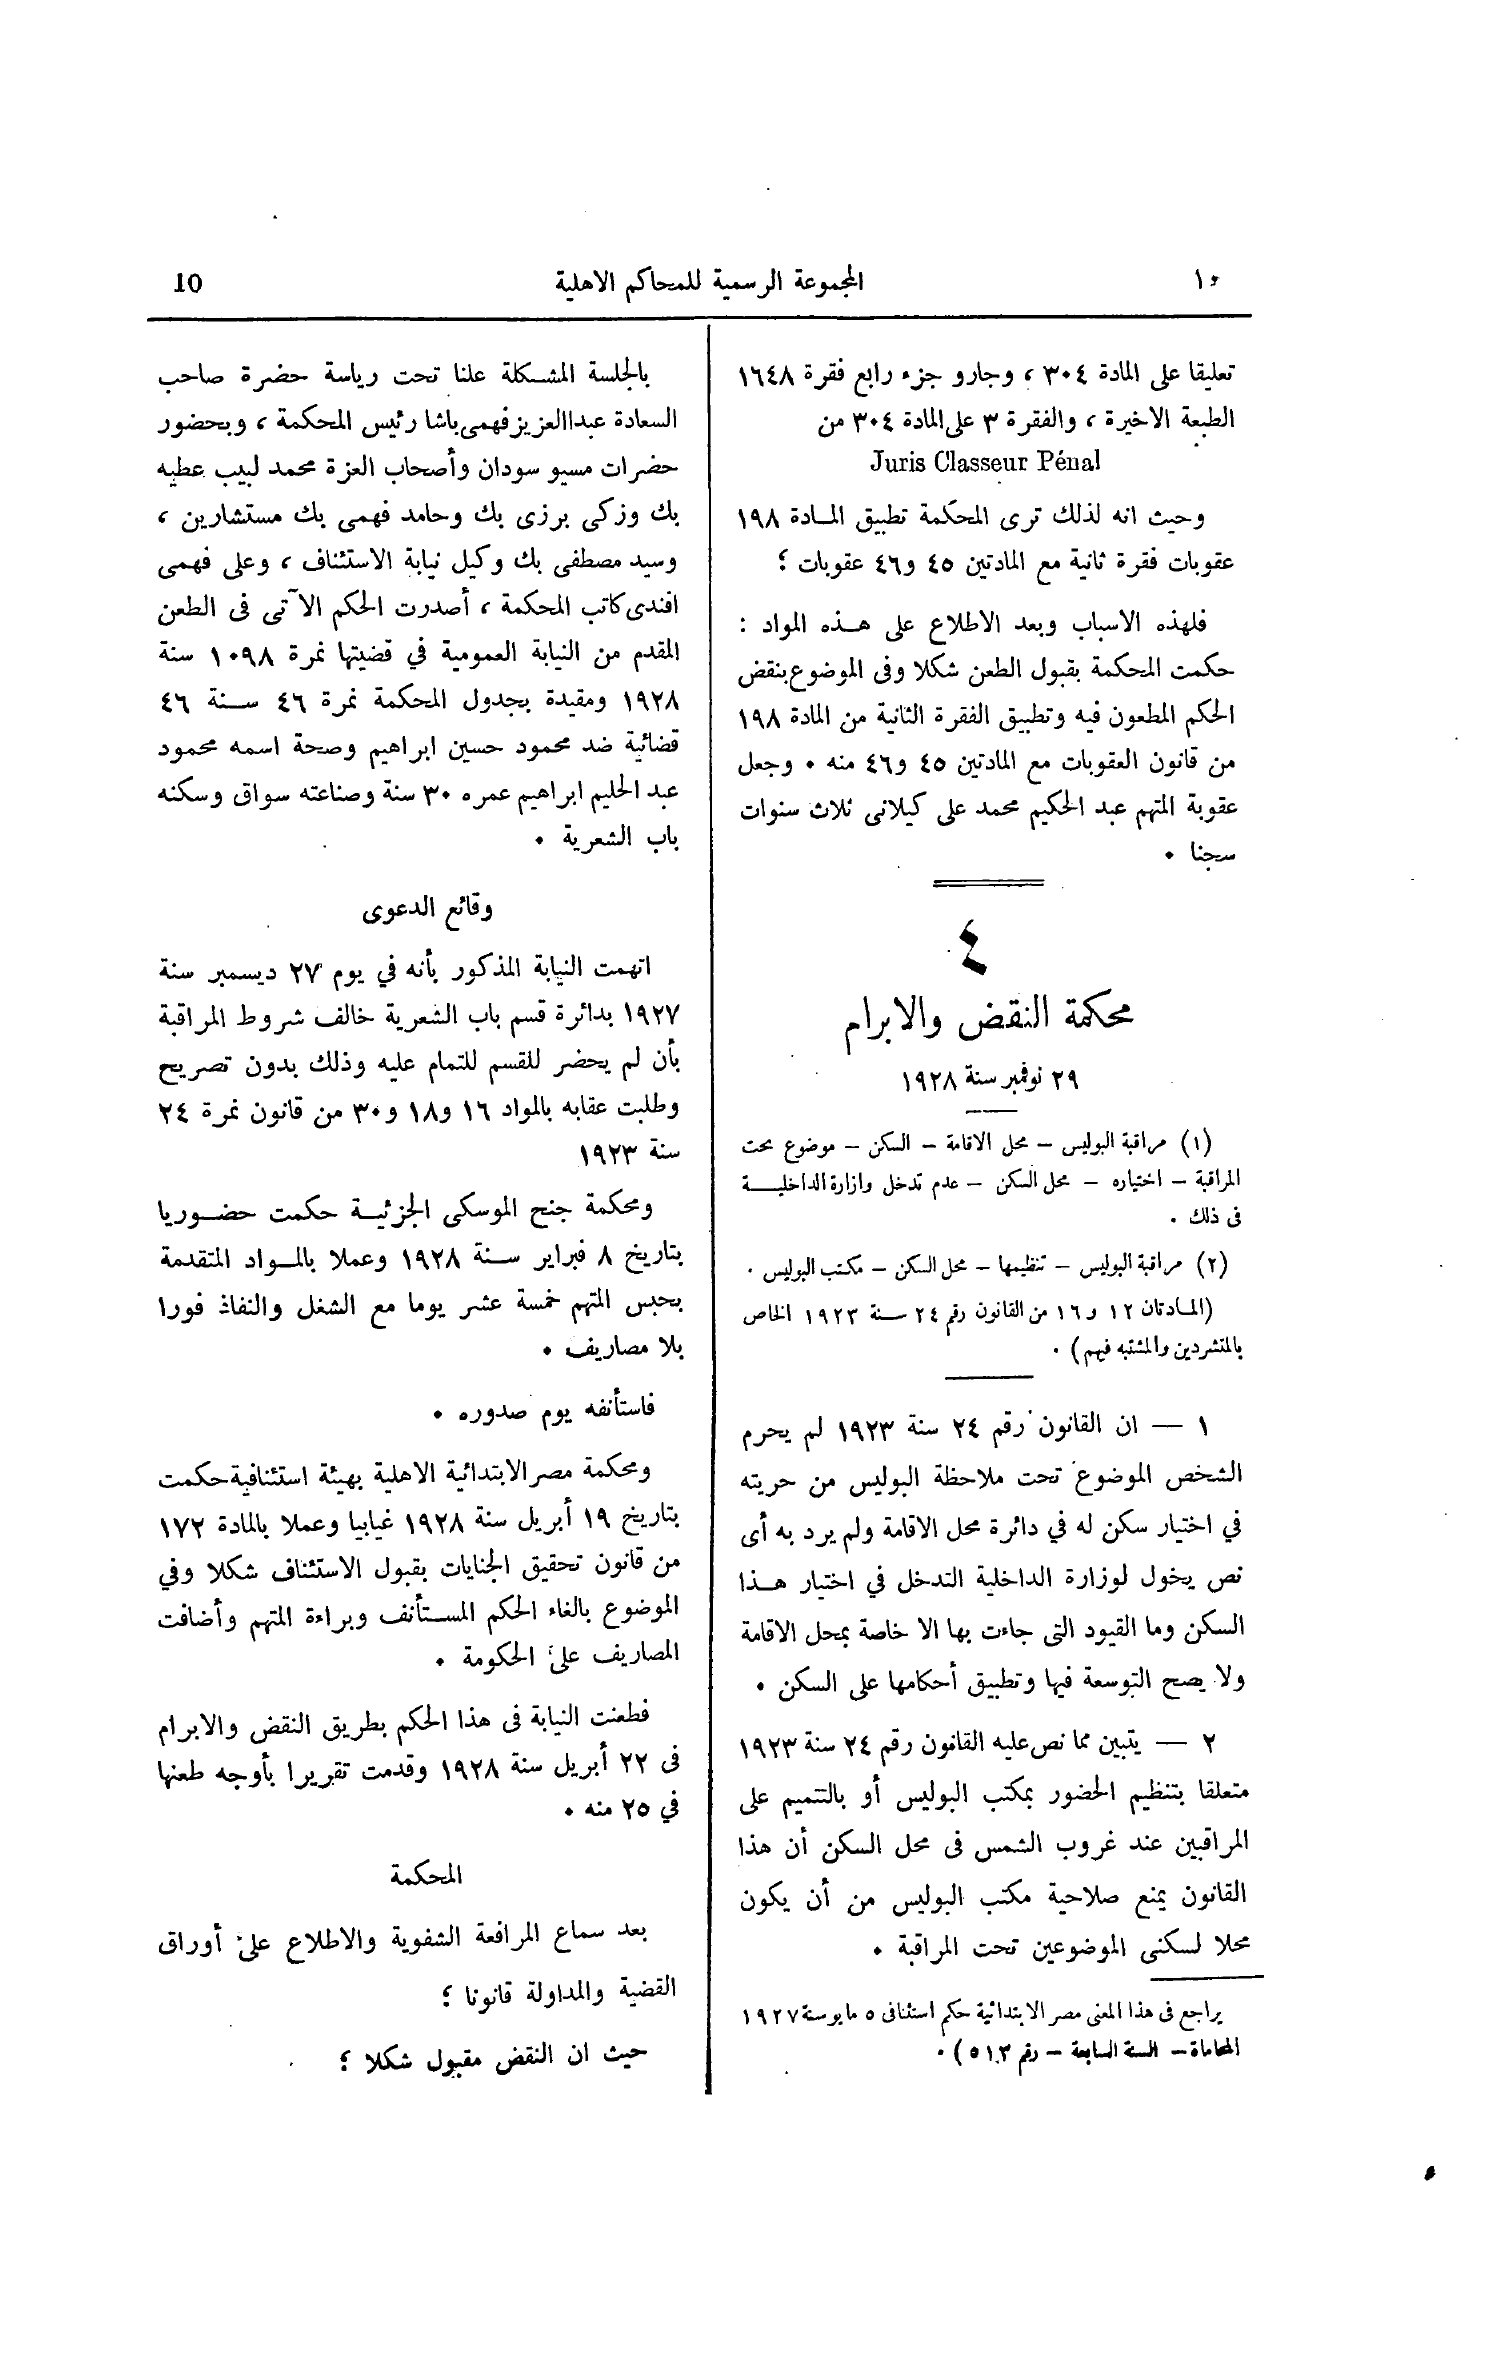 ١٠
المجموعة الرسمية للمحاكم الاهلية
10
تعليقا على المادة ٣٠٤ ، وجارو جزء رابع فقرة ١٦٤٨
الطبعة الاخيرة ، والفقرة ٣ على المادة ٣٠٤ من
Juris Classeur Pénal
وحيث انه لذلك ترى المحكمة تطبيق المادة ١٩٨
عقوبات فقرة ثانية مع المادتين ٤٥ و٤٦ عقوبات ؛
فلهذه الاسباب وبعد الاطلاع على هذه المواد :
حكمت المحكمة بقبول الطعن شكلا وفى الموضوع بنقض
الحكم المطعون فيه وتطبيق الفقرة الثانية من المادة ١٩٨
من قانون العقوبات مع المادتين ٤٥ و٤٦ منه . وجعل
عقوبة المتهم عبد الحكيم محمد على كيلانى ثلاث سنوات
سجنا .
٤
محكمة النقض والابرام
٢٩ نوفمبر سنة ١٩٢٨
(١) مراقبة البوليس – محل الاقامة – السكن – موضوع تحت
المراقبة – اختياره – محل السكن – عدم تدخل وازارة الداخلية
فى ذلك .
(٢) مراقبة البوليس – تنظيمها – محل السكن – مكتب البوليس .
(المادتان ١٢ و١٦ من القانون رقم ٢٤ سنة ١٩٢٣ الخاص
بالمتشردين والمشتبه فيهم) .
١ — ان القانون رقم ٢٤ سنة ١٩٢٣ لم يحرم
الشخص الموضوع تحت ملاحظة البوليس من حريته
في اختيار سكن له في دائرة محل الاقامة ولم يرد به أى
نص يخول لوزارة الداخلية التدخل في اختيار هذا
السكن وما القيود التى جاءت بها الا خاصة بمحل الاقامة
ولا يصح التوسعة فيها وتطبيق أحكامها على السكن .
٢ — يتبين مما نص عليه القانون رقم ٢٤ سنة ١٩٢٣
متعلقا بتنظيم الحضور بمكتب البوليس أو بالتتميم على
المراقبين عند غروب الشمس فى محل السكن أن هذا
القانون يمنع صلاحية مكتب البوليس من أن يكون
محلا لسكنى الموضوعين تحت المراقبة .
يراجع فى هذا المعنى مصر الابتدائية حكم استئنافى ٥ مايو سنة ١٩٢٧
المحاماة – السنة السابعة – رقم ٥١٣) .
بالجلسة المشكلة علنا تحت رياسة حضرة صاحب
السعادة عبدالعزيز فهمى باشا رئيس المحكمة ، وبحضور
حضرات مسيو سودان وأصحاب العزة محمد لبيب عطيه
بك وزكى برزى بك وحامد فهمى بك مستشارين ،
وسيد مصطفى بك وكيل نيابة الاستئناف ، وعلى فهمى
افندى كاتب المحكمة ، أصدرت الحكم الآتى فى الطعن
المقدم من النيابة العمومية في قضيتها نمرة ١٠٩٨ سنة
١٩٢٨ ومقيدة بجدول المحكمة نمرة ٤٦ سنة ٤٦
قضائية ضد محمود حسين ابراهيم وصحة اسمه محمود
عبد الحليم ابراهيم عمره ٣٠ سنة وصناعته سواق وسكنه
باب الشعرية .
وقائع الدعوى
اتهمت النيابة المذكور بأنه في يوم ٢٧ ديسمبر سنة
١٩٢٧ بدائرة قسم باب الشعرية خالف شروط المراقبة
بأن لم يحضر للقسم للتمام عليه وذلك بدون تصريح
وطلبت عقابه بالمواد ١٦ و١٨ و٣٠ من قانون نمرة ٢٤
سنة ١٩٢٣
ومحكمة جنح الموسكى الجزئية حكمت حضوريا
بتاريخ ٨ فبراير سنة ١٩٢٨ وعملا بالمواد المتقدمة
بحبس المتهم خمسة عشر يوما مع الشغل والنفاذ فورا
بلا مصاريف .
فاستأنفه يوم صدوره .
ومحكمة مصر الابتدائية الاهلية بهيئة استئنافية حكمت
بتاريخ ١٩ أبريل سنة ١٩٢٨ غيابيا وعملا بالمادة ١٧٢
من قانون تحقيق الجنايات بقبول الاستئناف شكلا وفي
الموضوع بالغاء الحكم المستأنف وبراءة المتهم وأضافت
المصاريف على الحكومة .
فطعنت النيابة فى هذا الحكم بطريق النقض والابرام
فى ٢٢ أبريل سنة ١٩٢٨ وقدمت تقريرا بأوجه طعنها
في ٢٥ منه .
المحكمة
بعد سماع المرافعة الشفوية والاطلاع على أوراق
القضية والمداولة قانونا ؛
حيث ان النقض مقبول شكلا ؛